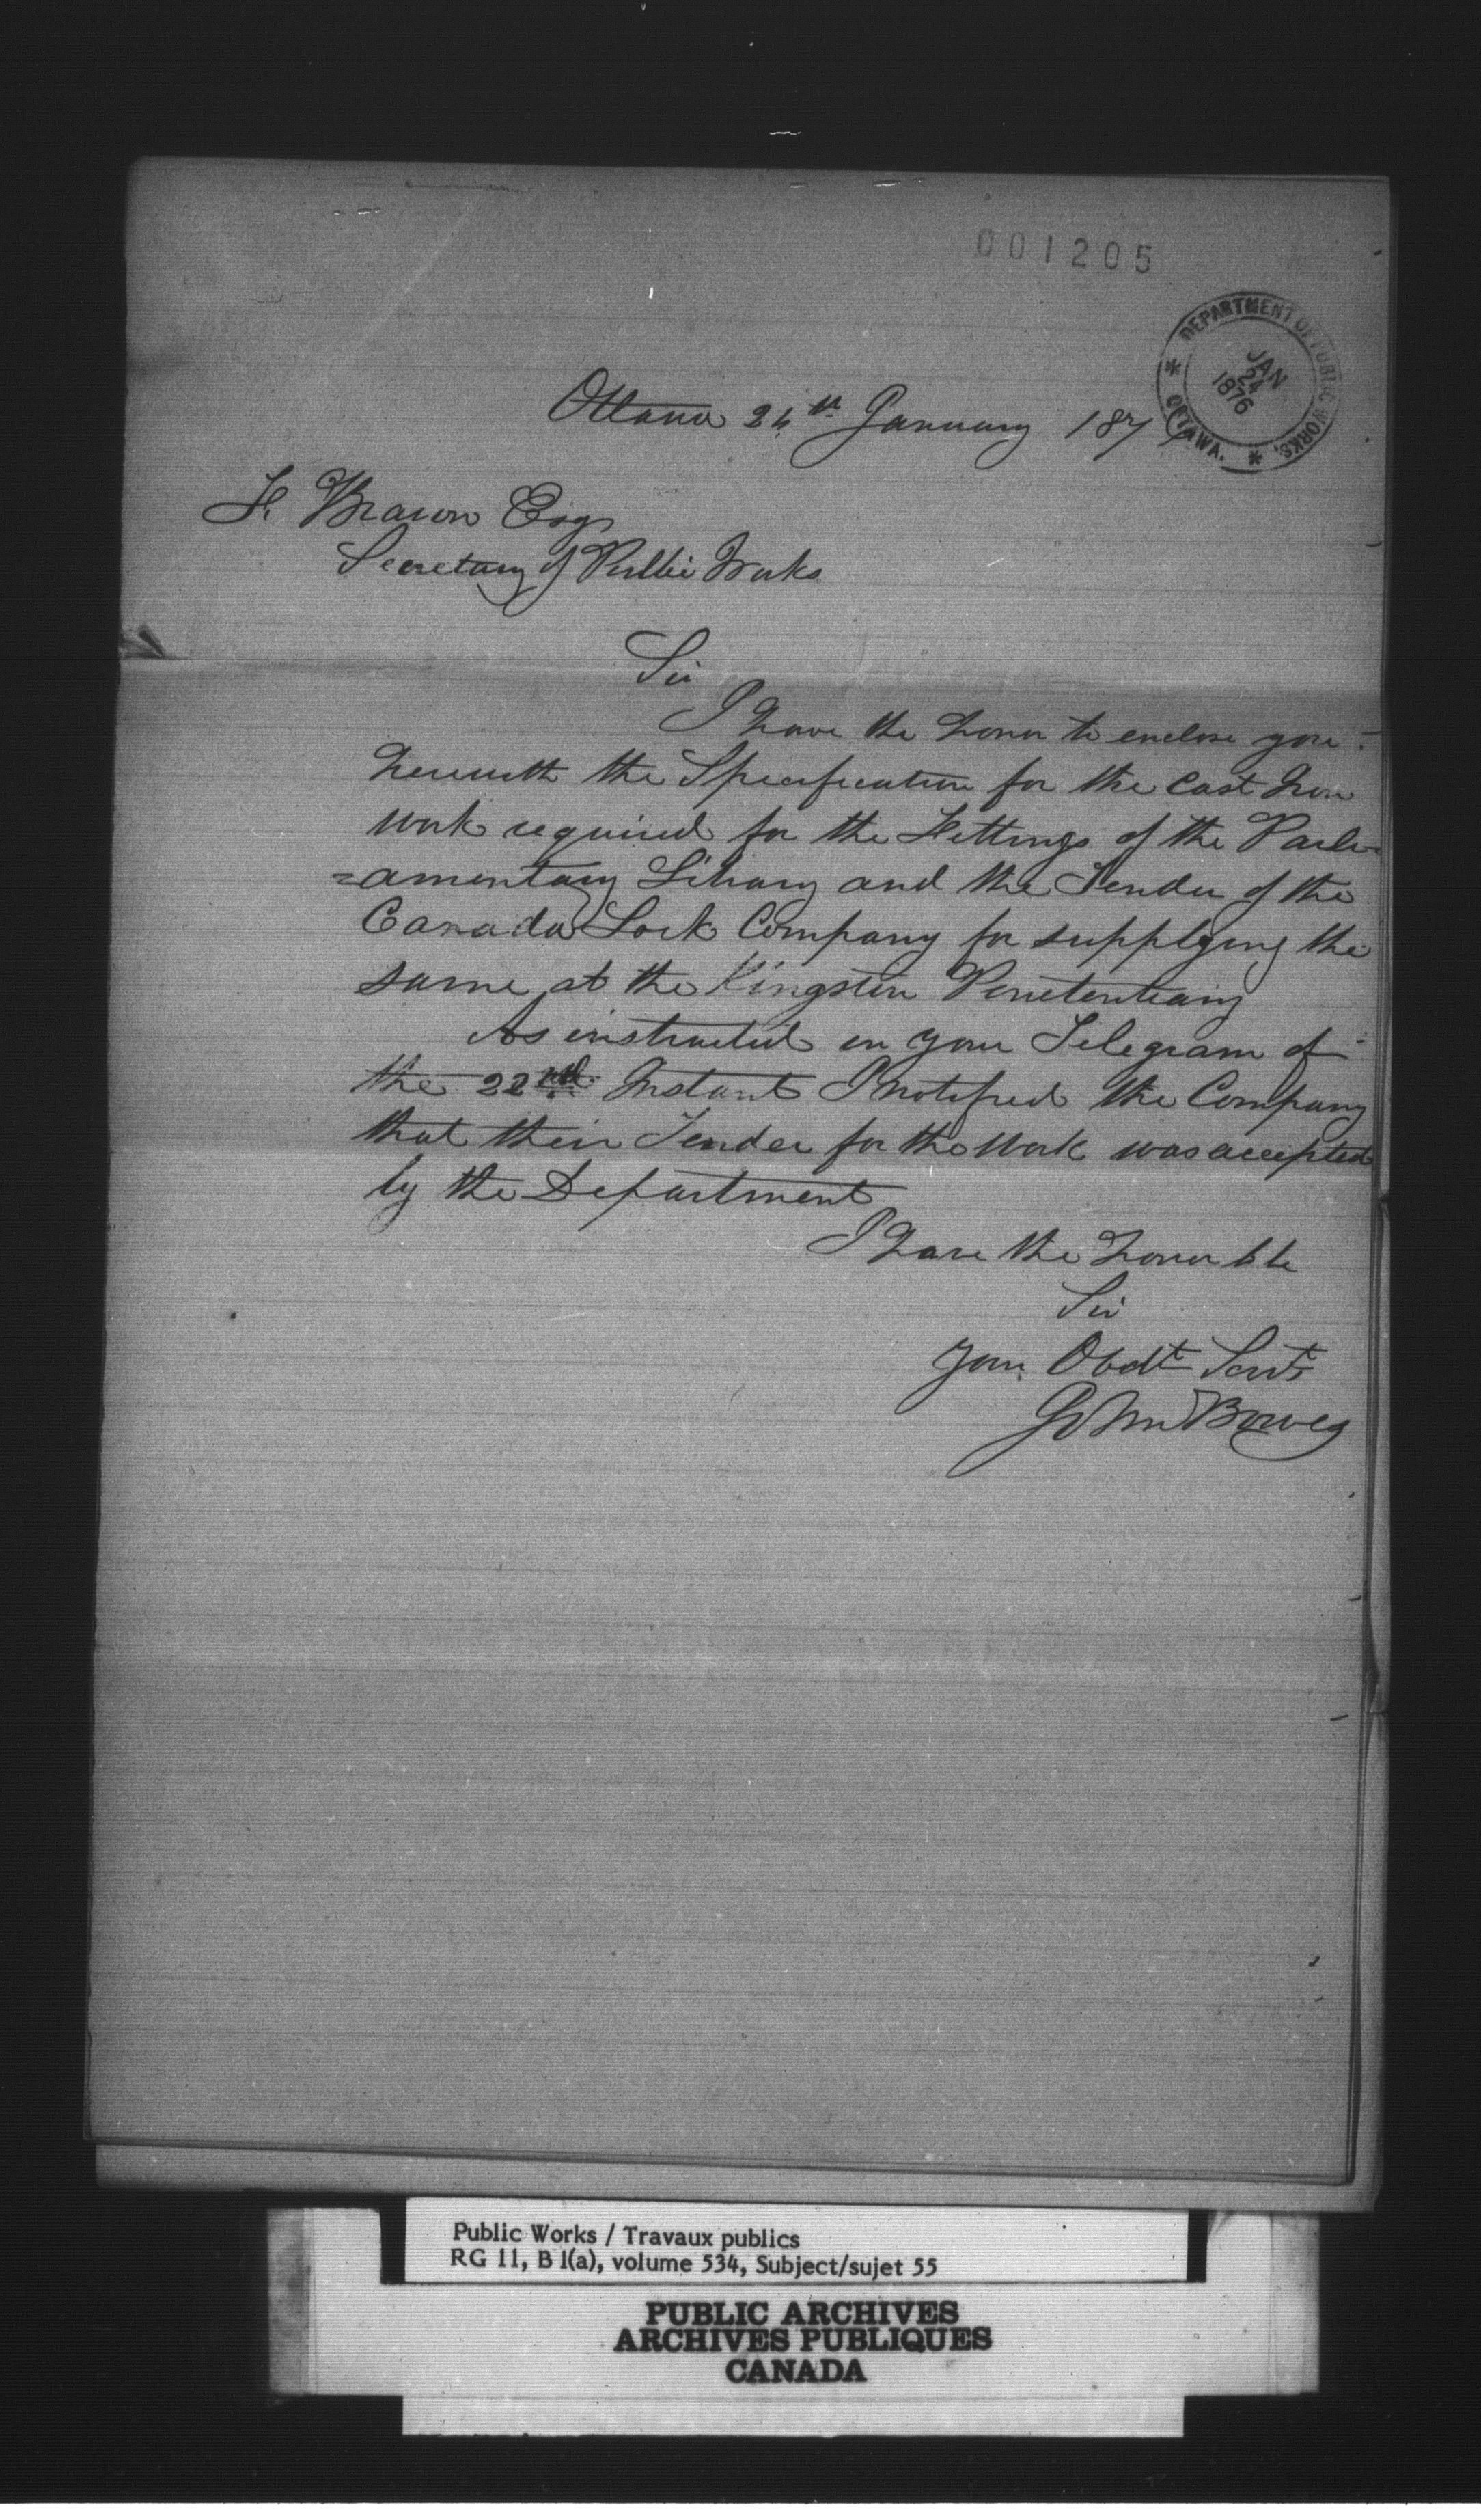 001205
DEPARTMENT OF PUBLIC WORKS.
JAN
24
1876
* OTTAWA. *
Ottawa 24th January 187
F. Braun Esqr
Secretary of Public Works
Sir
I have the honor to enclose you
herewith the Specification for the Cast Iron
work required for the Fittings of the Parli-
=amentary Library and the Tender of the
Canada Lock Company for supplying the
same at the Kingston Penetentiary
As instructed in your Telegram of
the 22nd Instant I notified the Company
that their Tender for the work was accepted
by the Department
I have the honor to be
Sir
Your Obdt Servt
John Bowes
Public Works / Travaux publics
RG 11, B 1(a), volume 534, Subject/sujet 55
PUBLIC ARCHIVES
ARCHIVES PUBLIQUES
CANADA